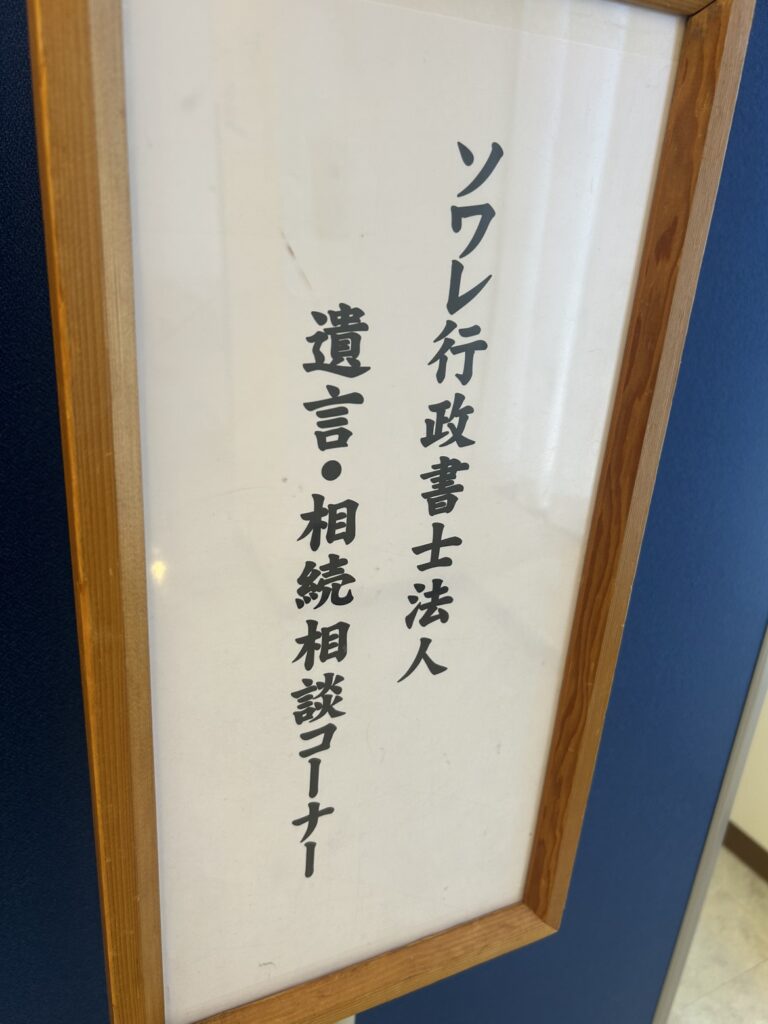 ソワレ行政書士法人
遺言・相続相談コーナー